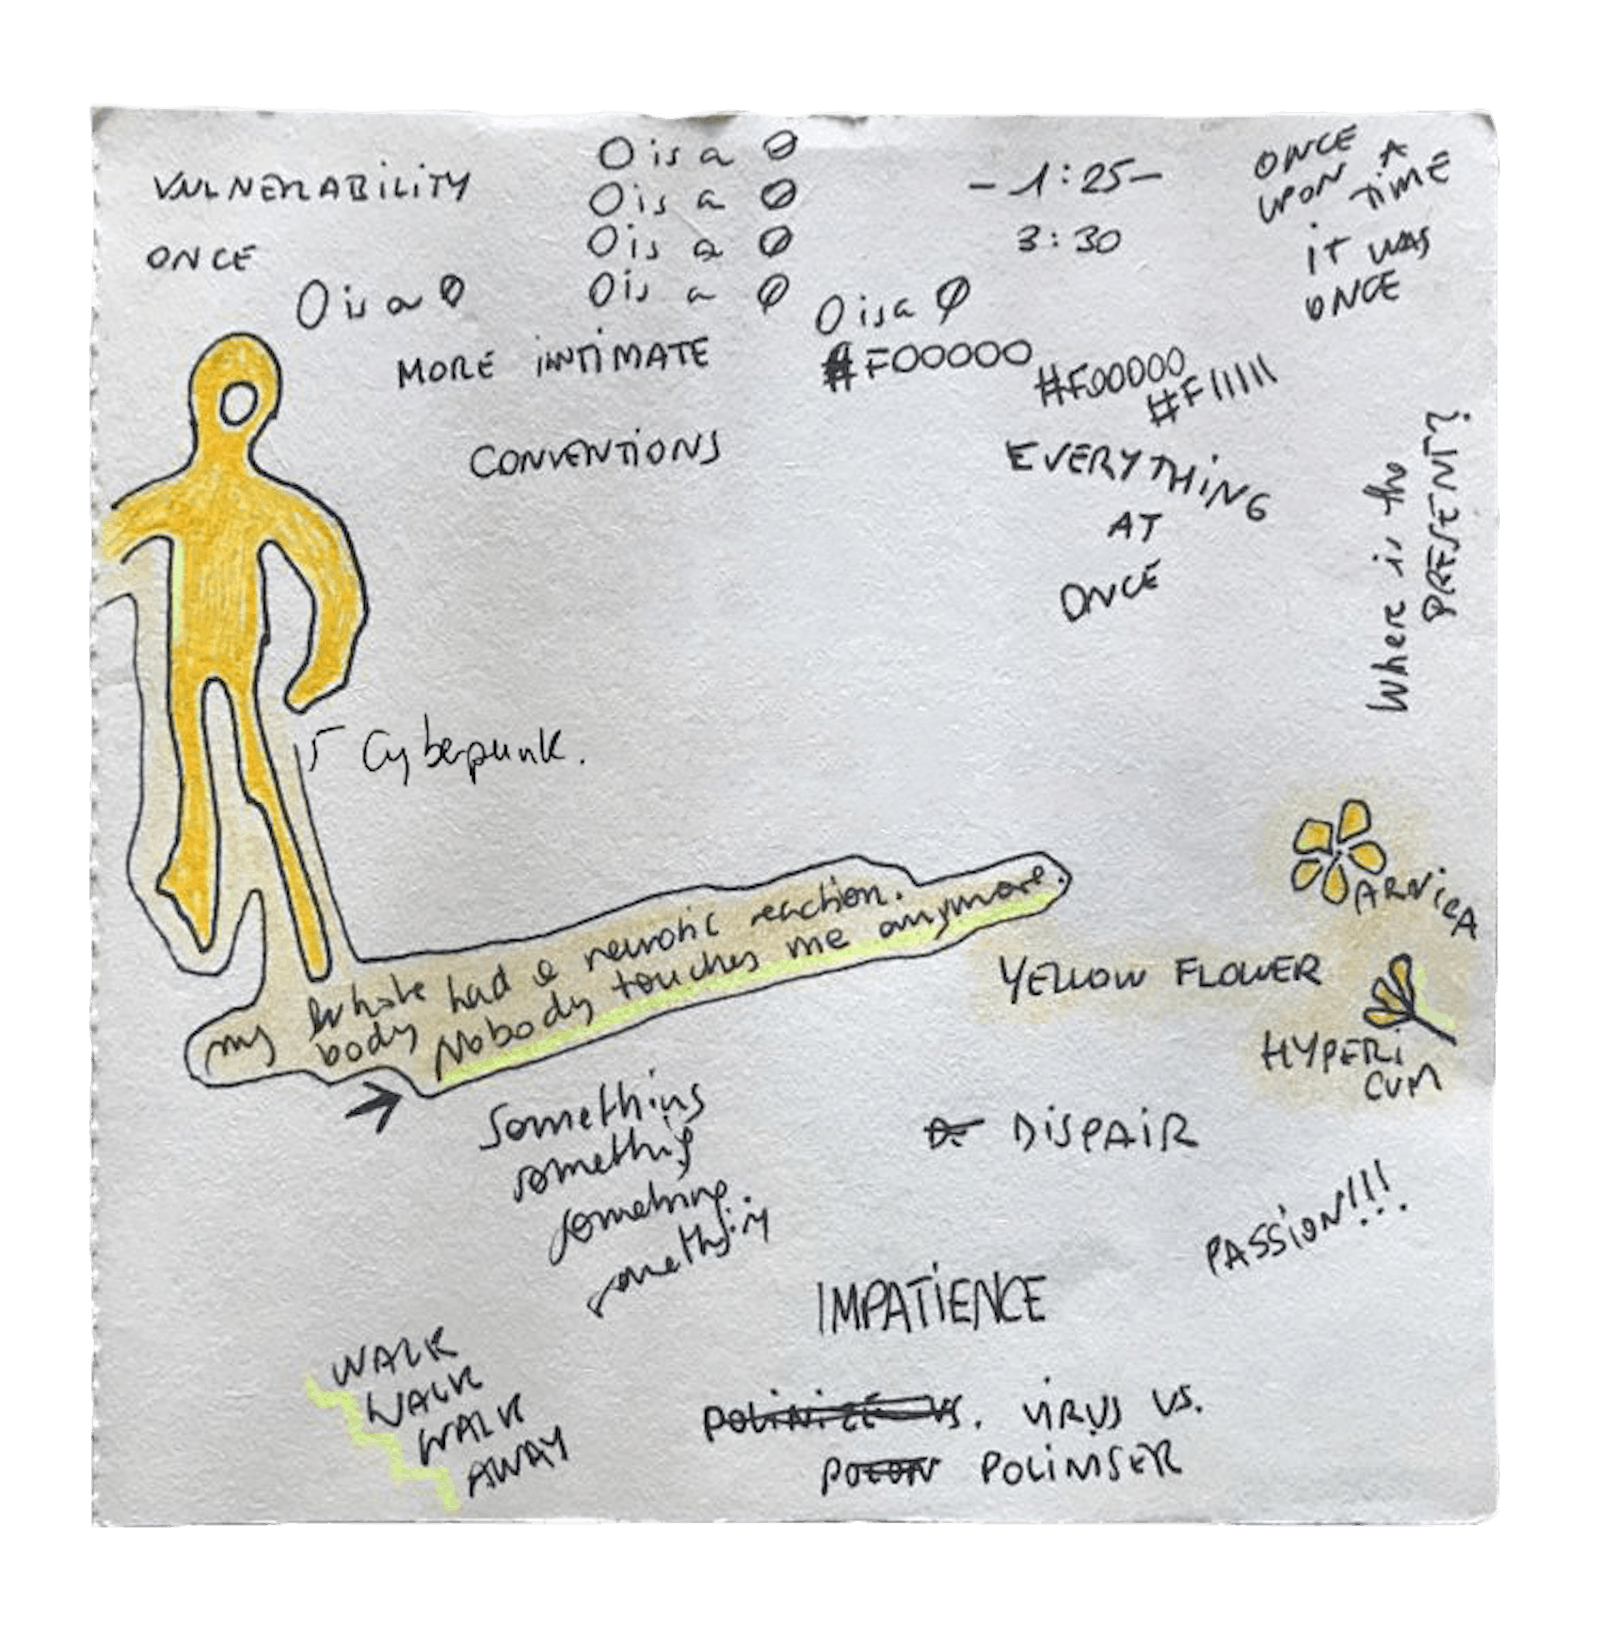 VULNERABILITY
ONCE
O is a Ø
O is a Ø
O is a Ø
O is a Ø
O is a Ø
O is a Ø
- 1:25 -
3:30
ONCE
UPON A
TIME
IT WAS
ONCE
MORE INTIMATE
#F00000
#F00000
#F11111
CONVENTIONS
EVERYTHING
AT
ONCE
Where is the
PRESENT?
Cyberpunk.
my whole
body had a neurotic reaction.
Nobody touches me anymore.
ARNICA
YELLOW FLOWER
HYPERI
CUM
something
something
something.
something
D. DISPAIR
PASSION!!!
IMPATIENCE
WALK
WALK
WALK
AWAY
VS. VIRUS VS.
POLIMSER